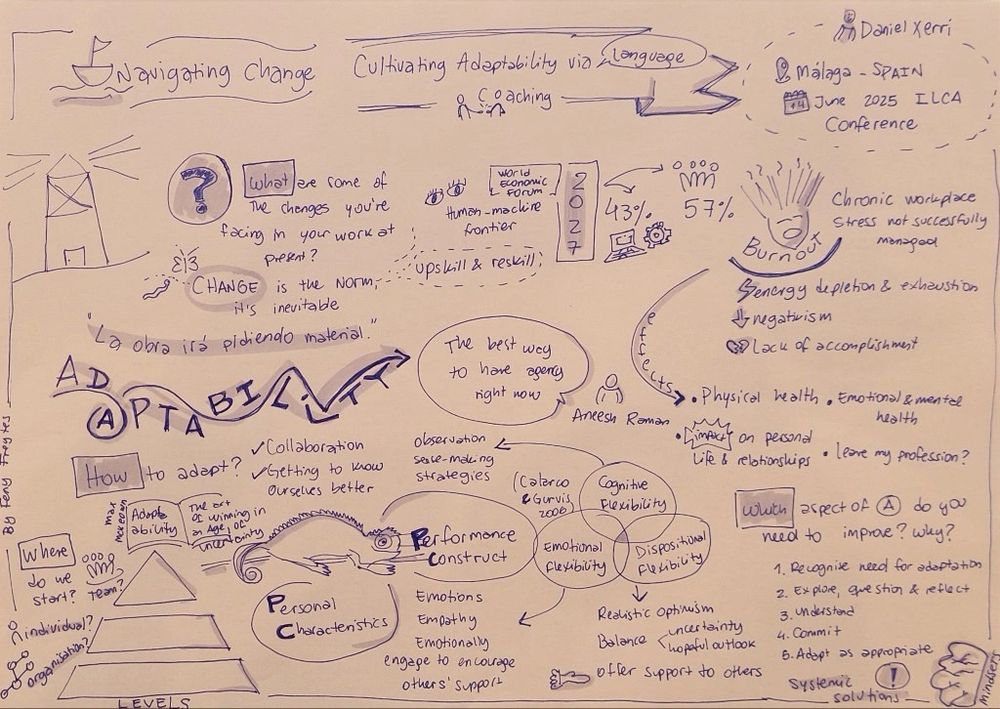 Navigating Change
Cultivating Adaptability via Language
Coaching
Daniel Xerri
Málaga - SPAIN
14 June 2025 ILCA
Conference
What are some of
the changes you're
facing in your work at
present?
CHANGE is the NORM,
it's inevitable
World
Economic
Forum
Human-machine
frontier
upskill & reskill
2027
43%
57%
Burnout
Chronic workplace
Stress not successfully
managed
energy depletion & exhaustion
negativism
Lack of accomplishment
effects
• Physical health
• Emotional & mental
health
• Impact on personal
life & relationships
• leave my profession?
"La obra irá pidiendo material."
ADAPTABILITY
The best way
to have agency
right now
Aneesh Raman
How to adapt?
✓ Collaboration
✓ Getting to know
ourselves better
By Feny Freytes
Max
Mckeown
Adapt
ability
The art
of winning in
an Age of
uncertainty
Where
do we
start?
Team?
individual?
organisation?
LEVELS
Performance
Construct
Personal
Characteristics
observation
sense-making
strategies
(Calarco
& Gurvis
2006)
Cognitive
Flexibility
Emotional
flexibility
Dispositional
Flexibility
Emotions
Empathy
Emotionally
engage to encourage
others' support
Realistic optimism
Balance
uncertainty
hopeful outlook
offer support to others
Which aspect of A do you
need to improve? Why?
1. Recognise need for adaptation
2. Explore, question & reflect
3. Understand
4. Commit
5. Adapt as appropriate
Systemic
solutions
!
Mindsets